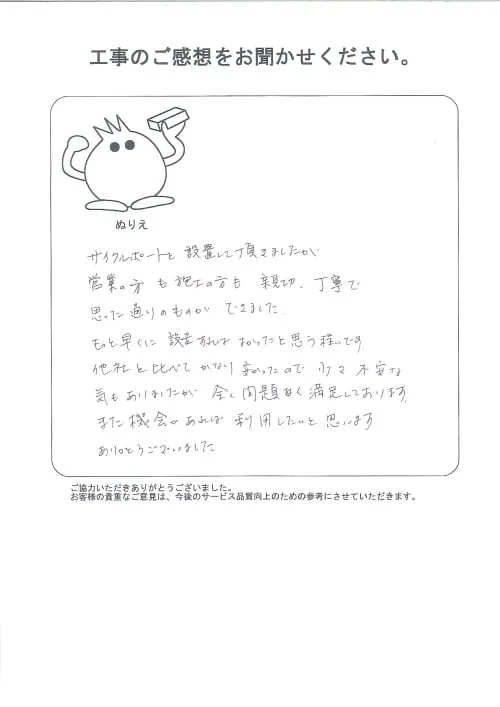 工事のご感想をお聞かせください。
ぬりえ
サイクルポートを 設置して頂きましたが
営業の方 も 施工の方も 親切、丁寧で
思った通りのものが できました。
もっと早くに 設置すれば よかったと思う程です
他社と比べて かなり安かったので 少々 不安な
気もありましたが 全く問題なく満足しております。
また機会があれば 利用したいと 思います
ありがとうございました
ご協力いただきありがとうございました。
お客様の貴重なご意見は、今後のサービス品質向上のための参考にさせていただきます。